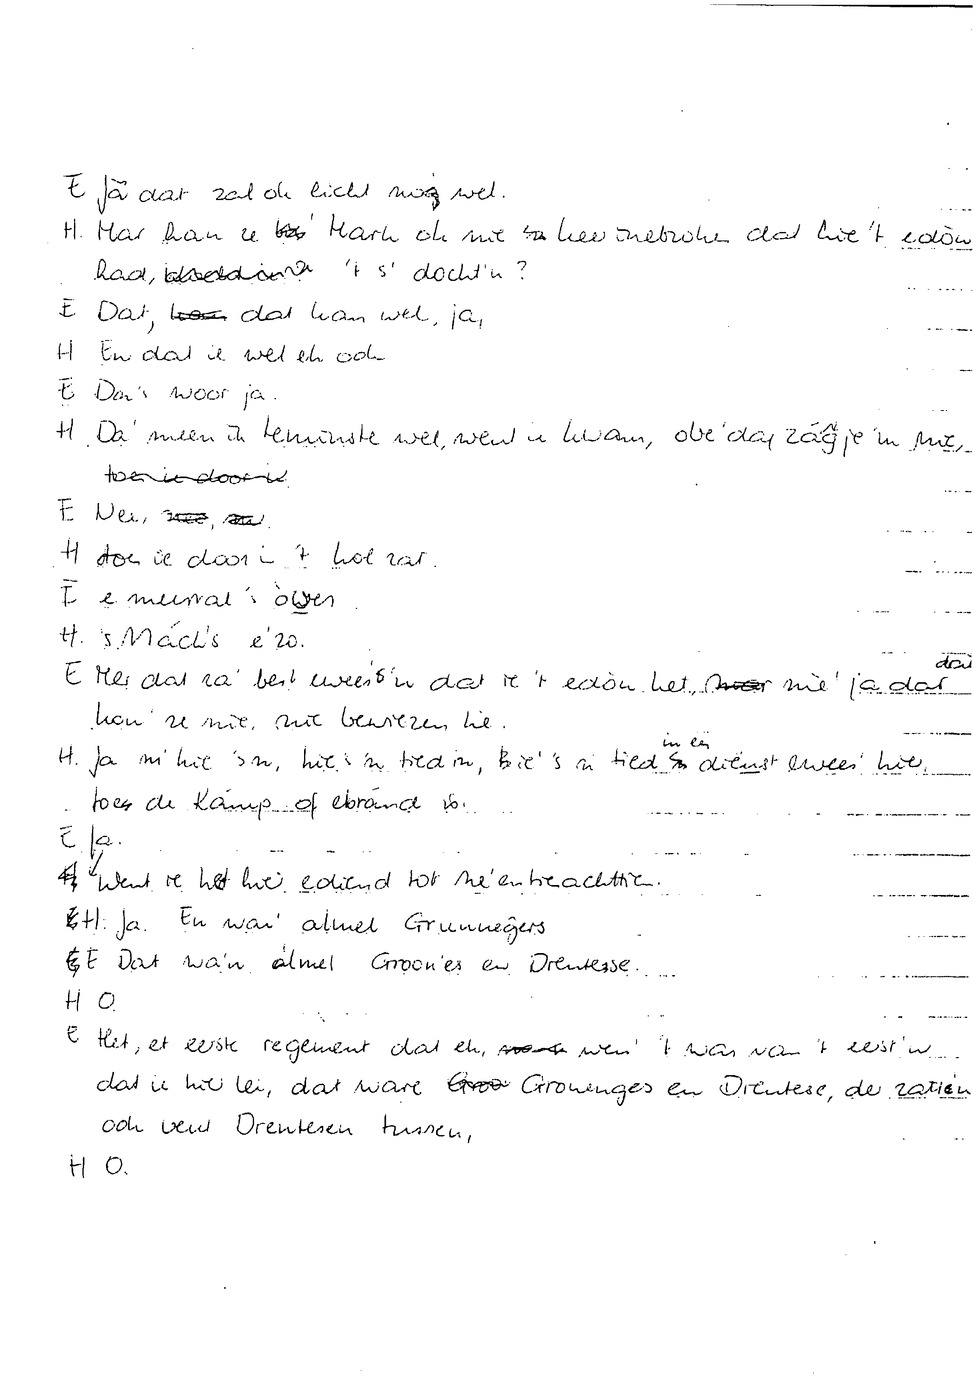 E Jā dat zal ok licht nog wel.
H. Mar kan ze Mark ok nie heen inebroke dat hie 't edòn
had, 't s' docht'n?
E Dat, dat kan wel, ja,
H En dat ie wel eh ook
E Da's woor ja.
H Da' meen ik teminste wel, went ie kwam, obe' dag zág je 'm nie,
toen ie door is
E Nee, nee,
H toe ie door i 't hol zat.
E e meesval 's òwer
H. 's Mách's e' zo.
E Mer dat za' best ewees'n dat ie 't edòn het, nie' ja dat
kon' ze nie, nie bewiezen hie.
H. Ja m' hie 's n, hie 's 'n tied in, hie 's n tied in ein dienst ewees' hie,
toen de Kàmp of ebrànd is.
E Ja.
Went ie het hie ediend tot ne'entreachttie.
H. Ja. En war' almel Grunnegers
E Dat wa'n àlmel Groon'es en Drentesse.
H O.
E Het, et eerste regement dat eh, wen' 't was van 't eest'n
dat ie hie lei, dat ware Gronenges en Drentese, de zatien
ook veul Drentesen tussen,
H O.